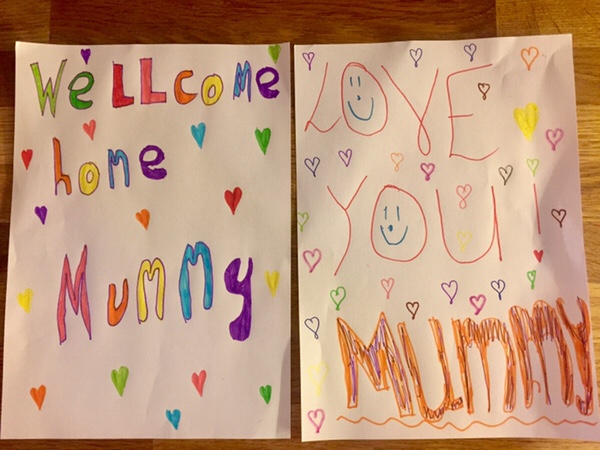 WeLLcome
home
Mummy
LOVE
YOU!
Mummy